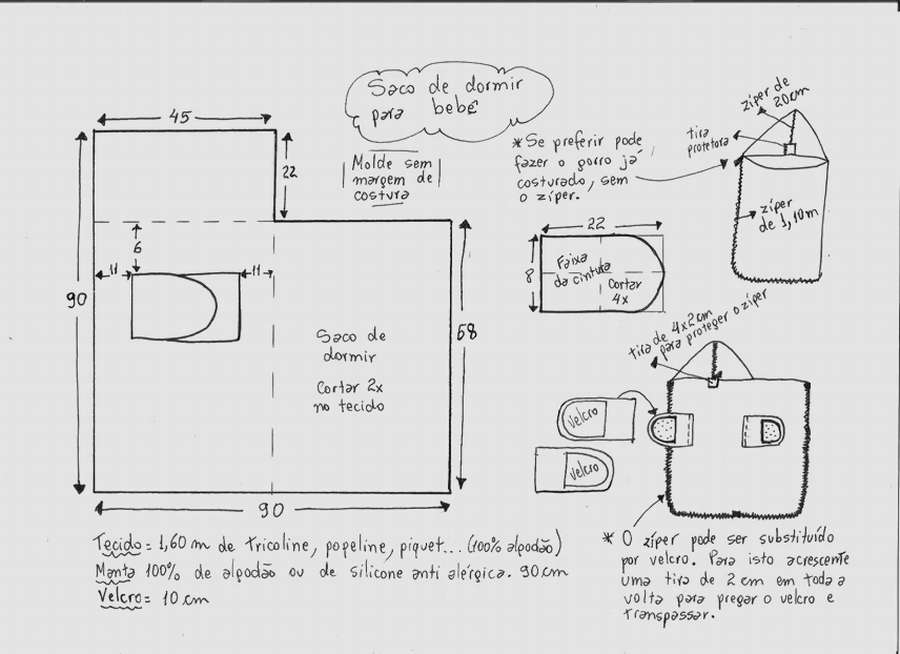 Saco de dormir
para bebê
45
22
Molde sem
margem de
costura
6
11
11
90
68
90
Saco de
dormir
Cortar 2x
no tecido
* Se preferir pode
fazer o gorro já
costurado, sem
o zíper.
22
8
Faixa
da cintura
Cortar
4x
zíper de
20cm
tira
protetora
zíper
de 1,10m
tira de 4x2cm
para proteger o zíper
Velcro
Velcro
* O zíper pode ser substituído
por velcro. Para isto acrescente
uma tira de 2 cm em toda a
volta para pregar o velcro e
transpassar.
Tecido = 1,60 m de tricoline, popeline, piquet... (100% algodão)
Manta 100% de algodão ou de silicone anti alérgica. 90cm
Velcro = 10 cm